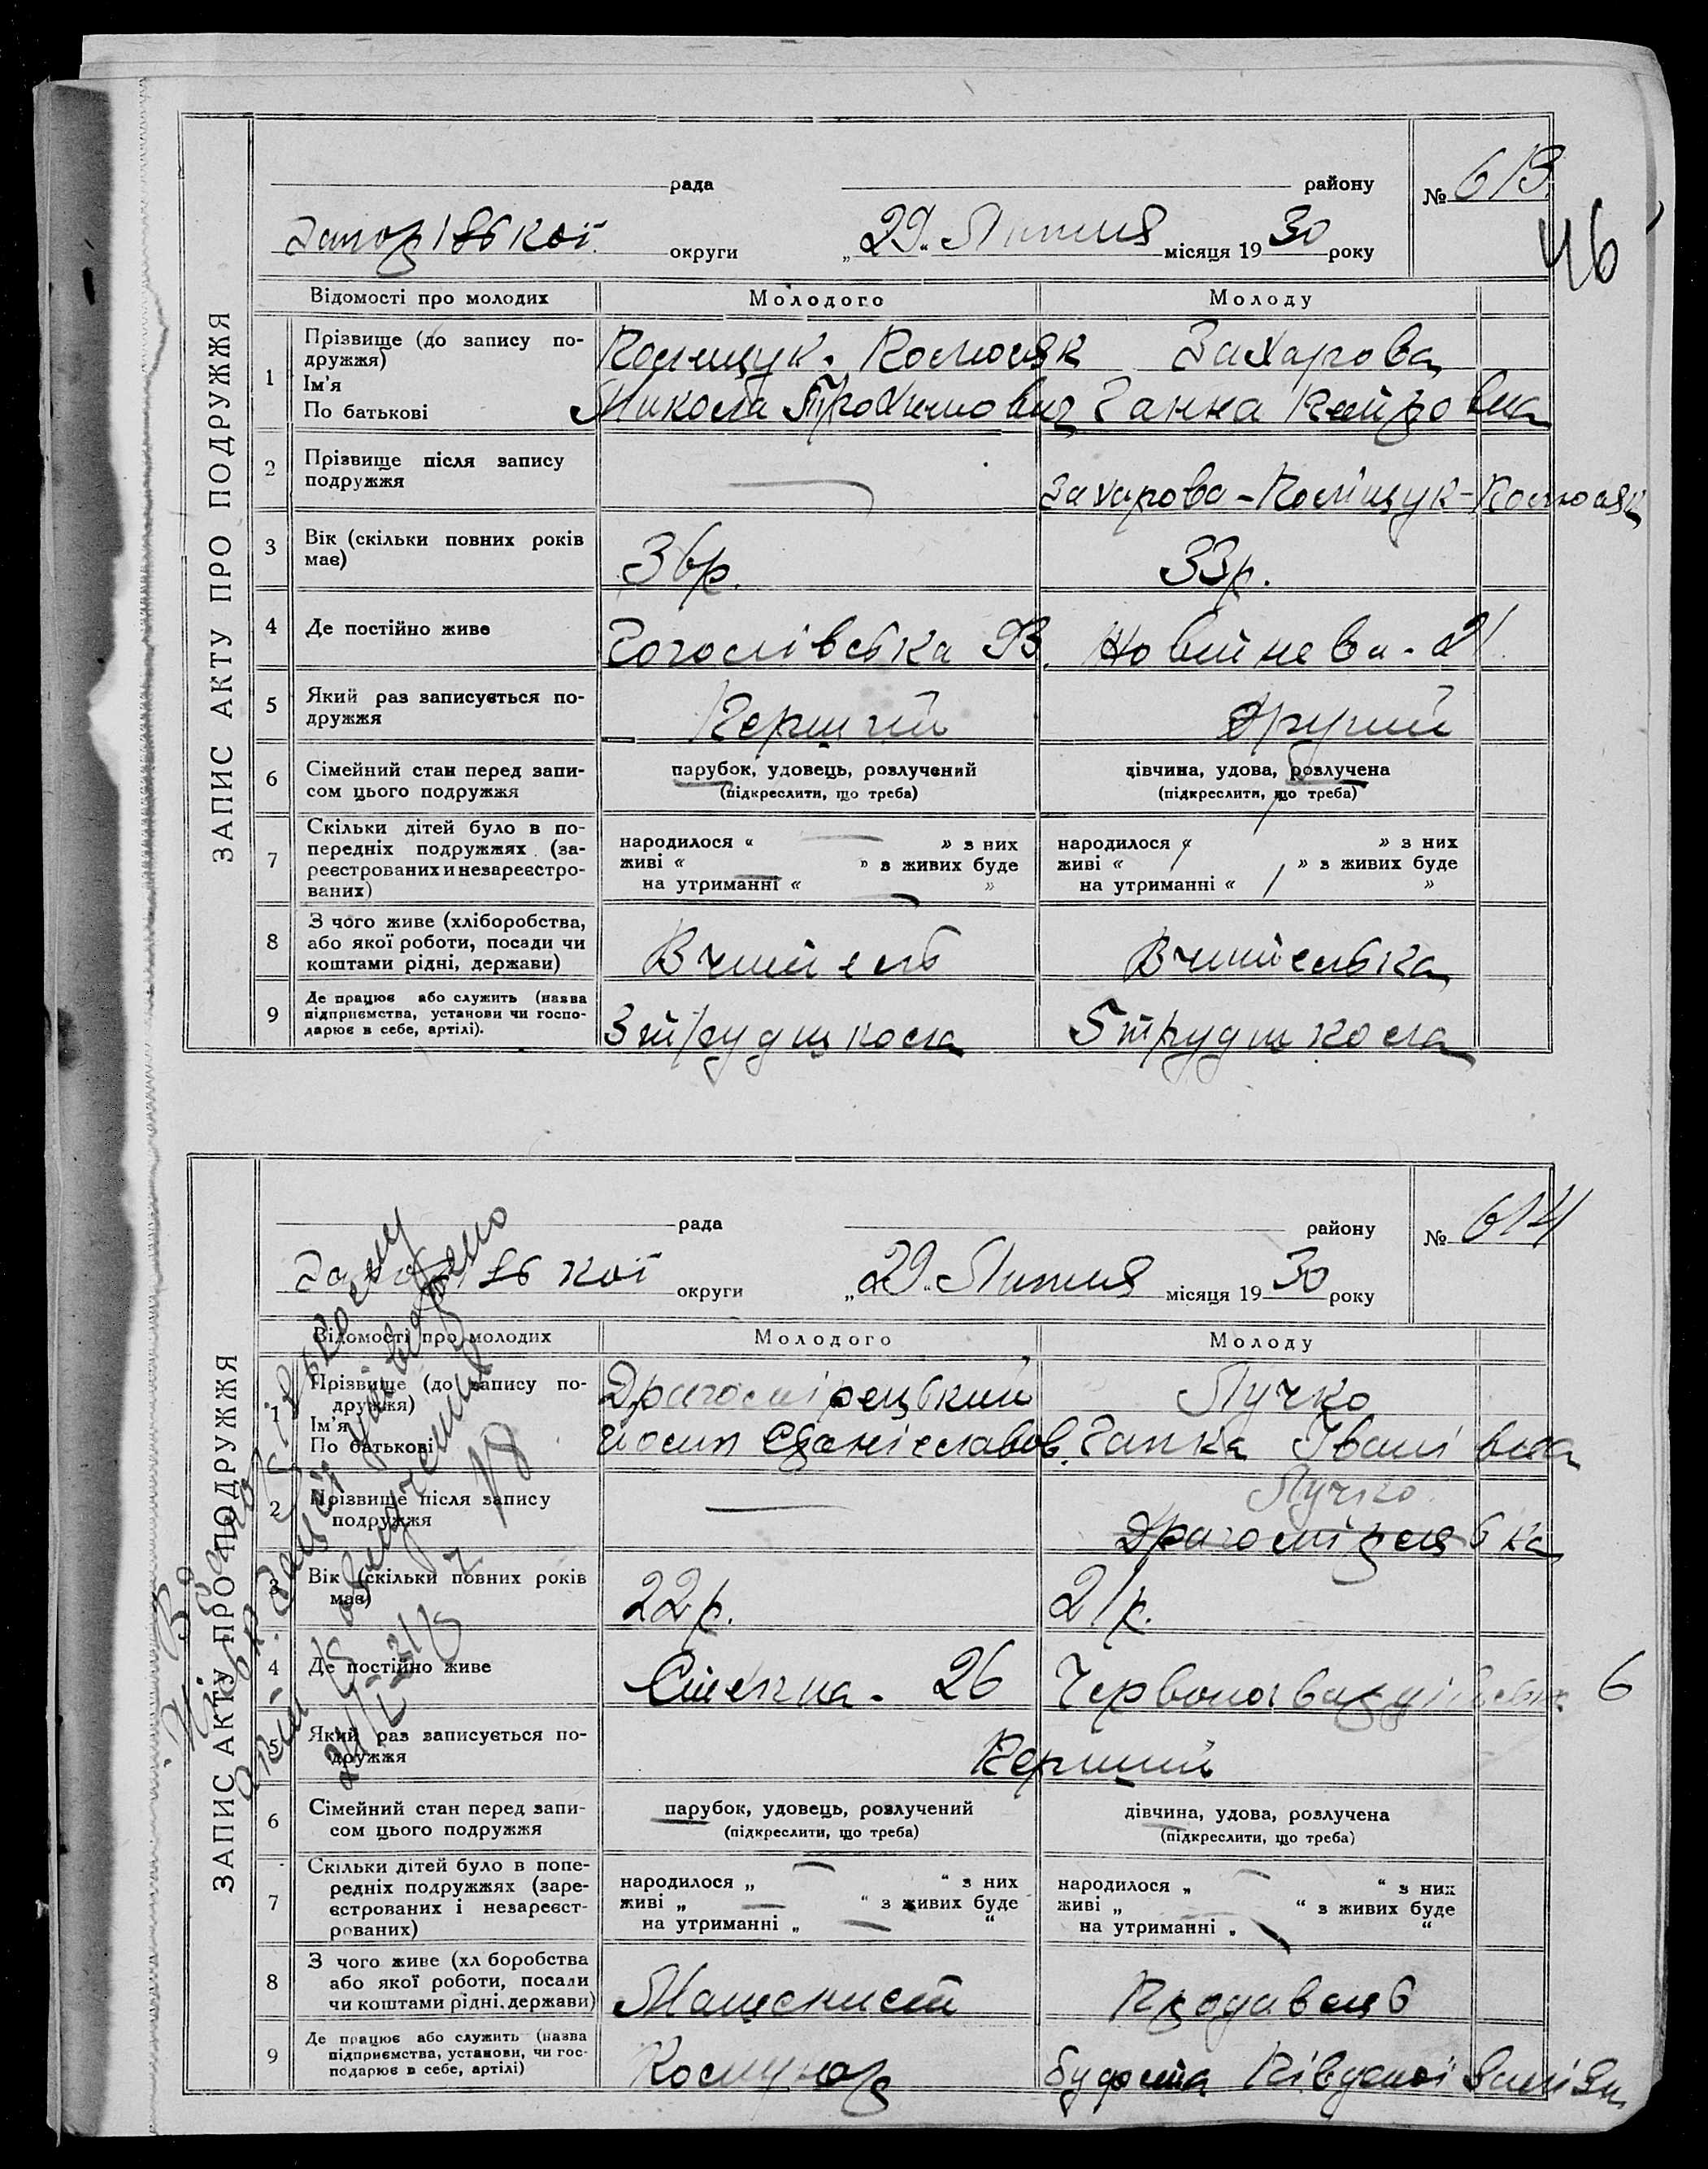 ЗАПИС АКТУ ПРО ПОДРУЖЖЯ
рада району № 613
46
Запорізької округи „29„ Липня місяця 1930 року
Відомості про молодих Молодого Молоду
1 Прізвище (до запису по-
дружжя)
Ім'я
По батькові
Захарова
Микола Трохимович Ганна Петровна
2 Прізвище після запису
подружжя
— Захарова-
3 Вік (скільки повних років
має)
36р. 33р.
4 Де постійно живе
Гоголівська 93.
5 Який раз записується по-
дружжя
Перший Другий
6 Сімейний стан перед запи-
сом цього подружжя
парубок, удовець, розлучений
(підкреслити, що треба)
дівчина, удова, розлучена
(підкреслити, що треба)
7 Скільки дітей було в по-
передніх подружжях (за-
реєстрованих и незареєстро-
ваних)
народилося « — » з них
живі « » з живих буде
на утриманні « »
народилося « » з них
живі « » з живих буде
на утриманні « »
8 З чого живе (хліборобства,
або якої роботи, посади чи
коштами рідні, держави)
Вчитель Вчителька
9 Де працює або служить (назва
підприємства, установи чи госпо-
дарює в себе, артілі).
3 трудшкола 5 трудшкола
ЗАПИС АКТУ ПРО ПОДРУЖЖЯ
рада району № 614
Запорізької округи „29„ Липня місяця 1930 року
Відомості про молодих Молодого Молоду
1 Прізвище (до запису по-
дружжя)
Ім'я
По батькові
Драгомірецький Лучко
Йосип Станіславов. Ганна Іванівна
2 Прізвище після запису
подружжя
— Лучко
Драгомірецька
3 Вік (скільки повних років
має)
22р. 21р.
4 Де постійно живе
Степна- 26 6
5 Який раз записується по-
дружжя
Перший
6 Сімейний стан перед запи-
сом цього подружжя
парубок, удовець, розлучений
(підкреслити, що треба)
дівчина, удова, розлучена
(підкреслити, що треба)
7 Скільки дітей було в попе-
редніх подружжях (заре-
єстрованих і незареєст-
рованих)
народилося „ — “ з них
живі „ — “ з живих буде
на утриманні „ — “
народилося „ — “ з них
живі „ “ з живих буде
на утриманні „ “
8 З чого живе (хл боробства
або якої роботи, посади
чи коштами рідні, держави)
Машиніст Продавець
9 Де працює або служить (назва
підприємства, установи, чи гос-
подарює в себе, артілі)
Комунар Південої